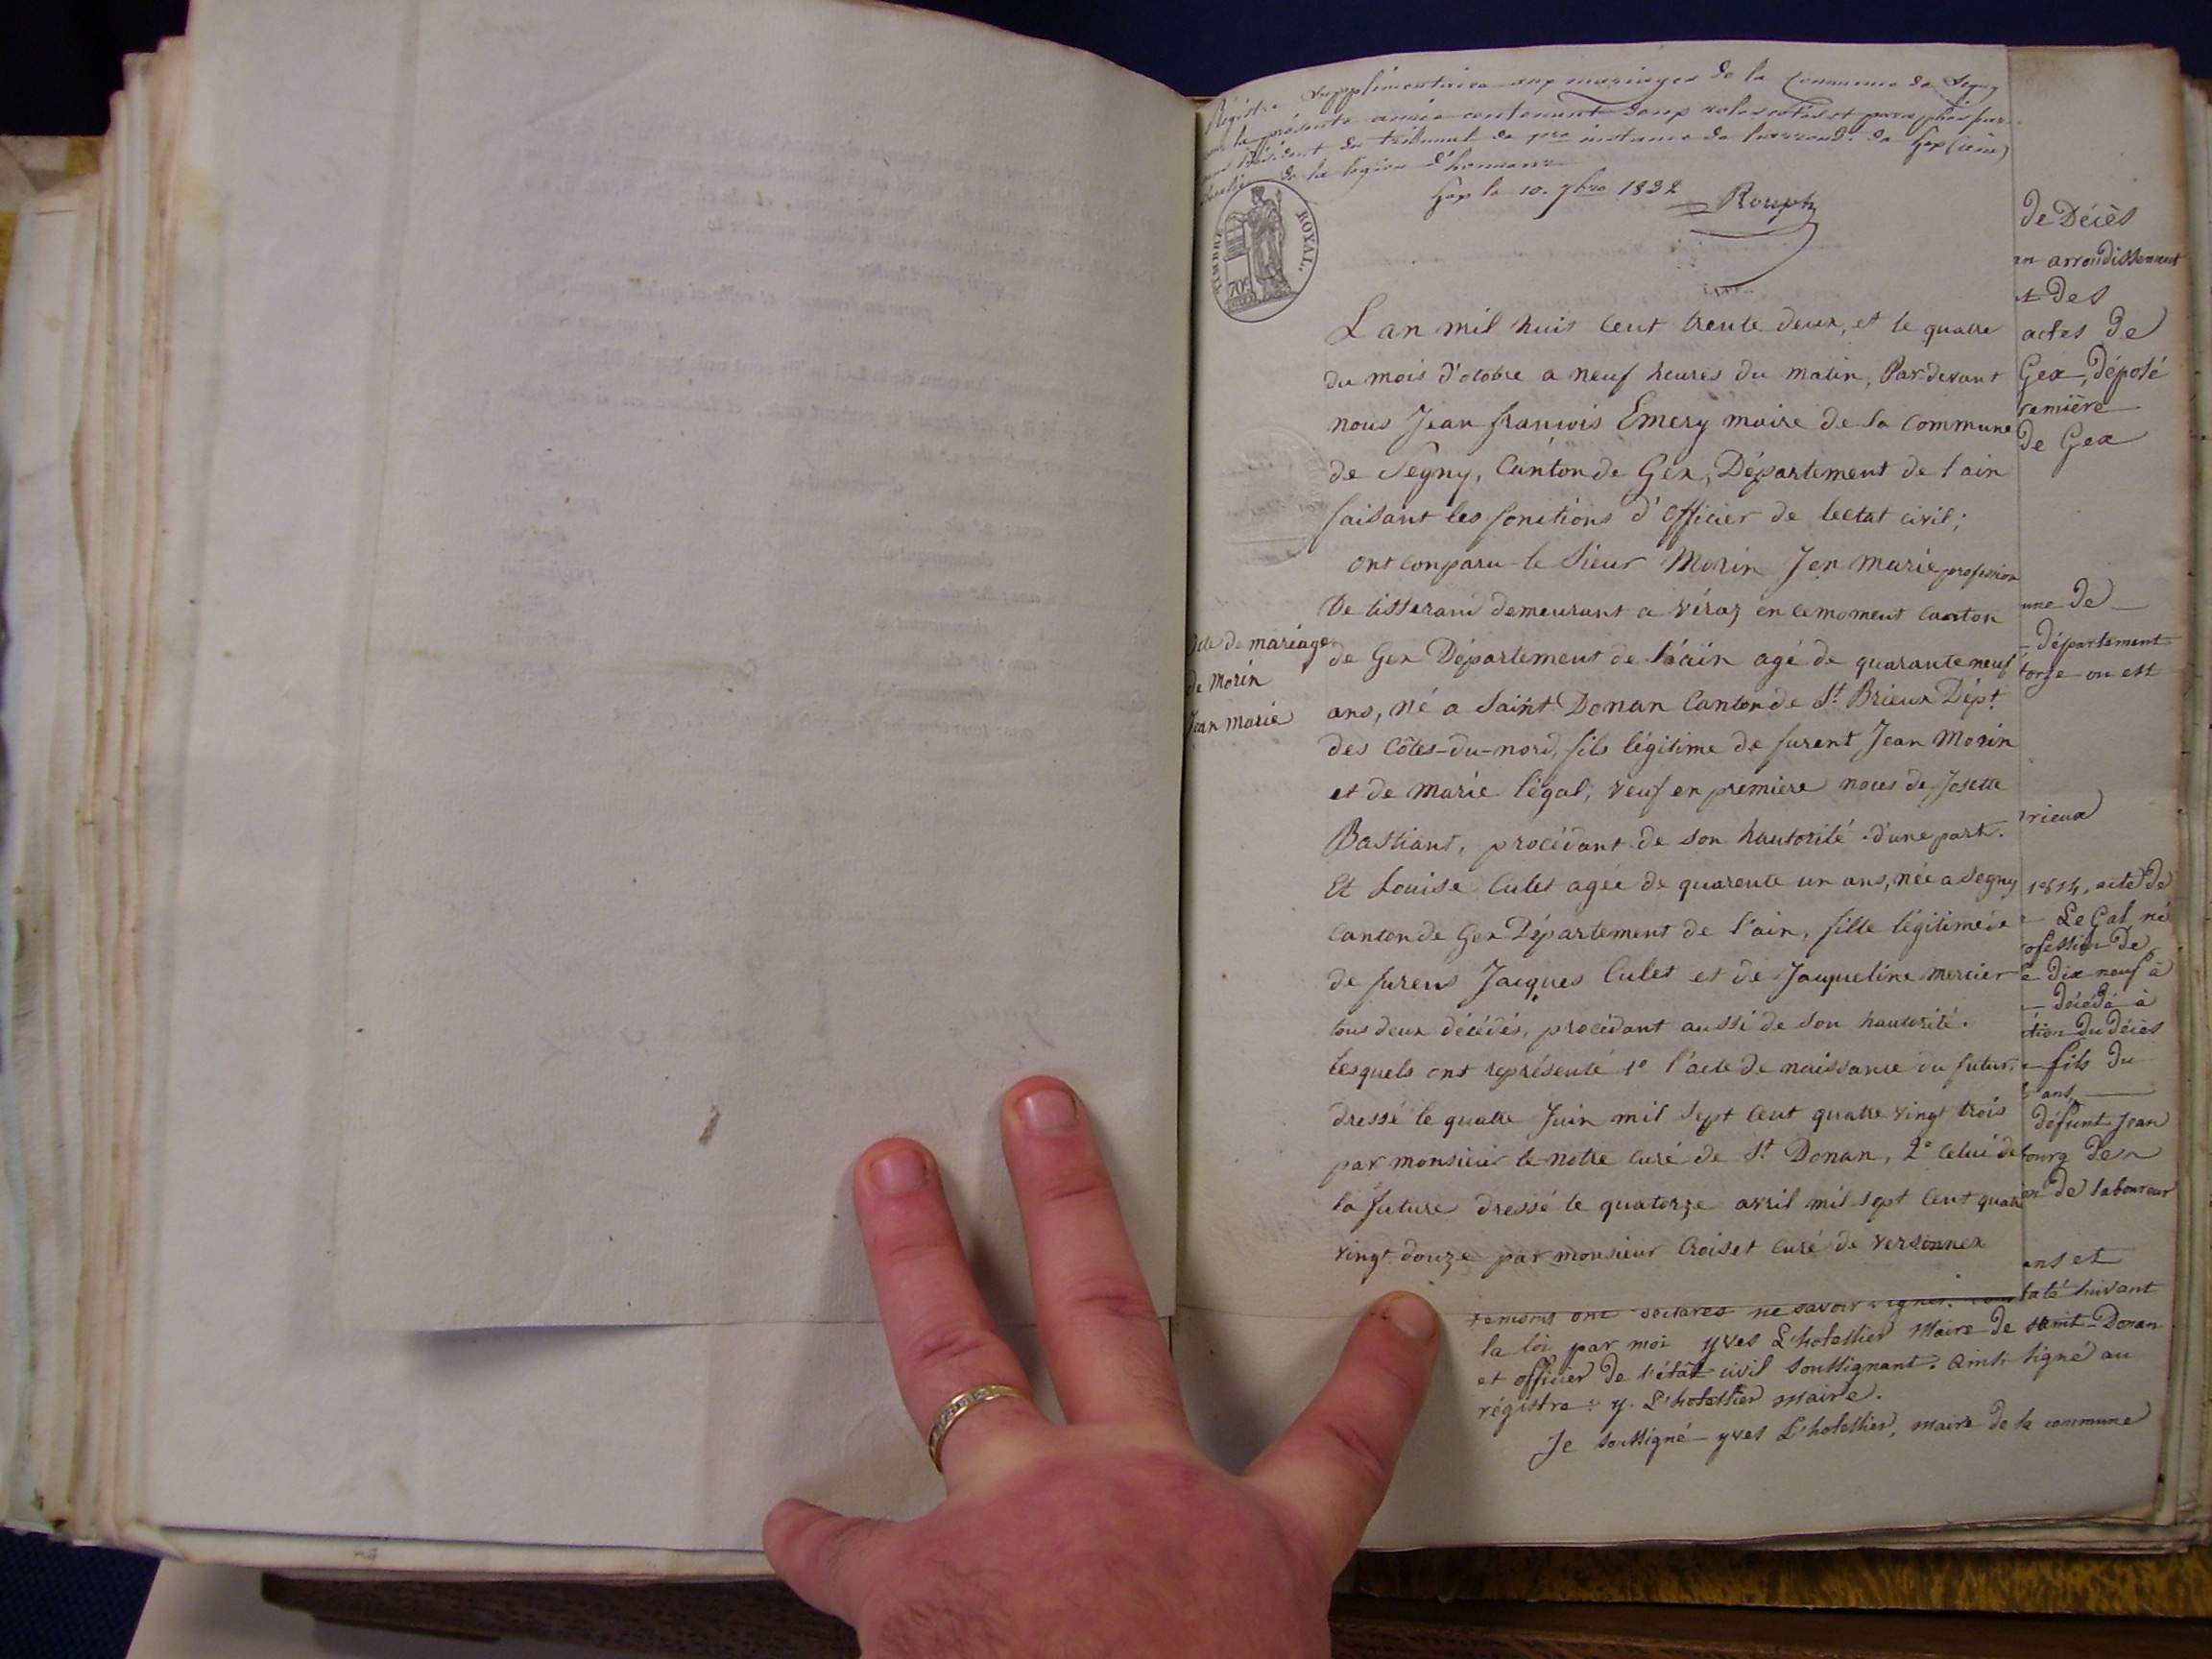 Registre supplémentaire aux mariages de la Commune de Segny
la présente année contenant deux roles cotés et paraphés par
président du tribunal de 1ere instance de l'arrond. de Gex (ain)
de la légion d'honneur
Gex le 10. 7bre 1832 Rouph
TIMBRE ROYAL.
70c
L an mil huit Cent trente deux, et le quatre
du mois d'octobre a neuf heures du matin, Par devant
nous Jean francois Emery maire de la Commune
de Segny, Canton de Gex, Département de l ain
faisant les fonctions d'Officier de lectat civil;
ont Conparu le Sieur Morin Jen Marie profession
De tisserand demeurant a Véraz en ce moment Canton
de Gex Département de l'ain agé de quarante neuf
ans, né a Saint Donan Canton de St. Brieux Dépt.
des Côtes-du-nord, fils légitime de furent Jean Morin
et de Marie légal; Veuf en premiere noces de Josette
Bastiant, procédant de son hautorité d'une part.
Et Louise Culet agée de quarente un ans, née a Segny
Canton de Gex Département de l'ain, fille légitime de
de furens Jacques Culet et de Jaqueline mercier
tous deux décédés, procédant aussi de son hautorité.
Lesquels ont représenté 1° l'acte de naissance du futur
dressé le quatre Juin mil Sept Cent quatre vingt trois
par monsieur le notre curé de St. Donan, 2° celui de
la future dressé le quatorze avril mil Sept Cent quatre
vingt douze par monsieur Croiset Curé de Versonnex
acte de mariage
de Morin
Jean Marie
de Décès
arrondissement
des
actes de
Gex, déposé
remière
de Gex
une de
département
torze ou est
rieux
1814, acte de
Le Gal né
ofession de
dix neuf à
décédé à
tion du décès
fils du
ans
défunt Jean
bourg de
de laboureur
ans et
taté suivant
temoins ont déclarés ne savoir signer.
la loi par moi yves L'hotellier Maire de saint-Donan
et officier de l'état civil soussignant. Ainsi signé au
régistre: y. L'hotellier Maire.
Je soussigné yves L'hotellier, maire de la commune